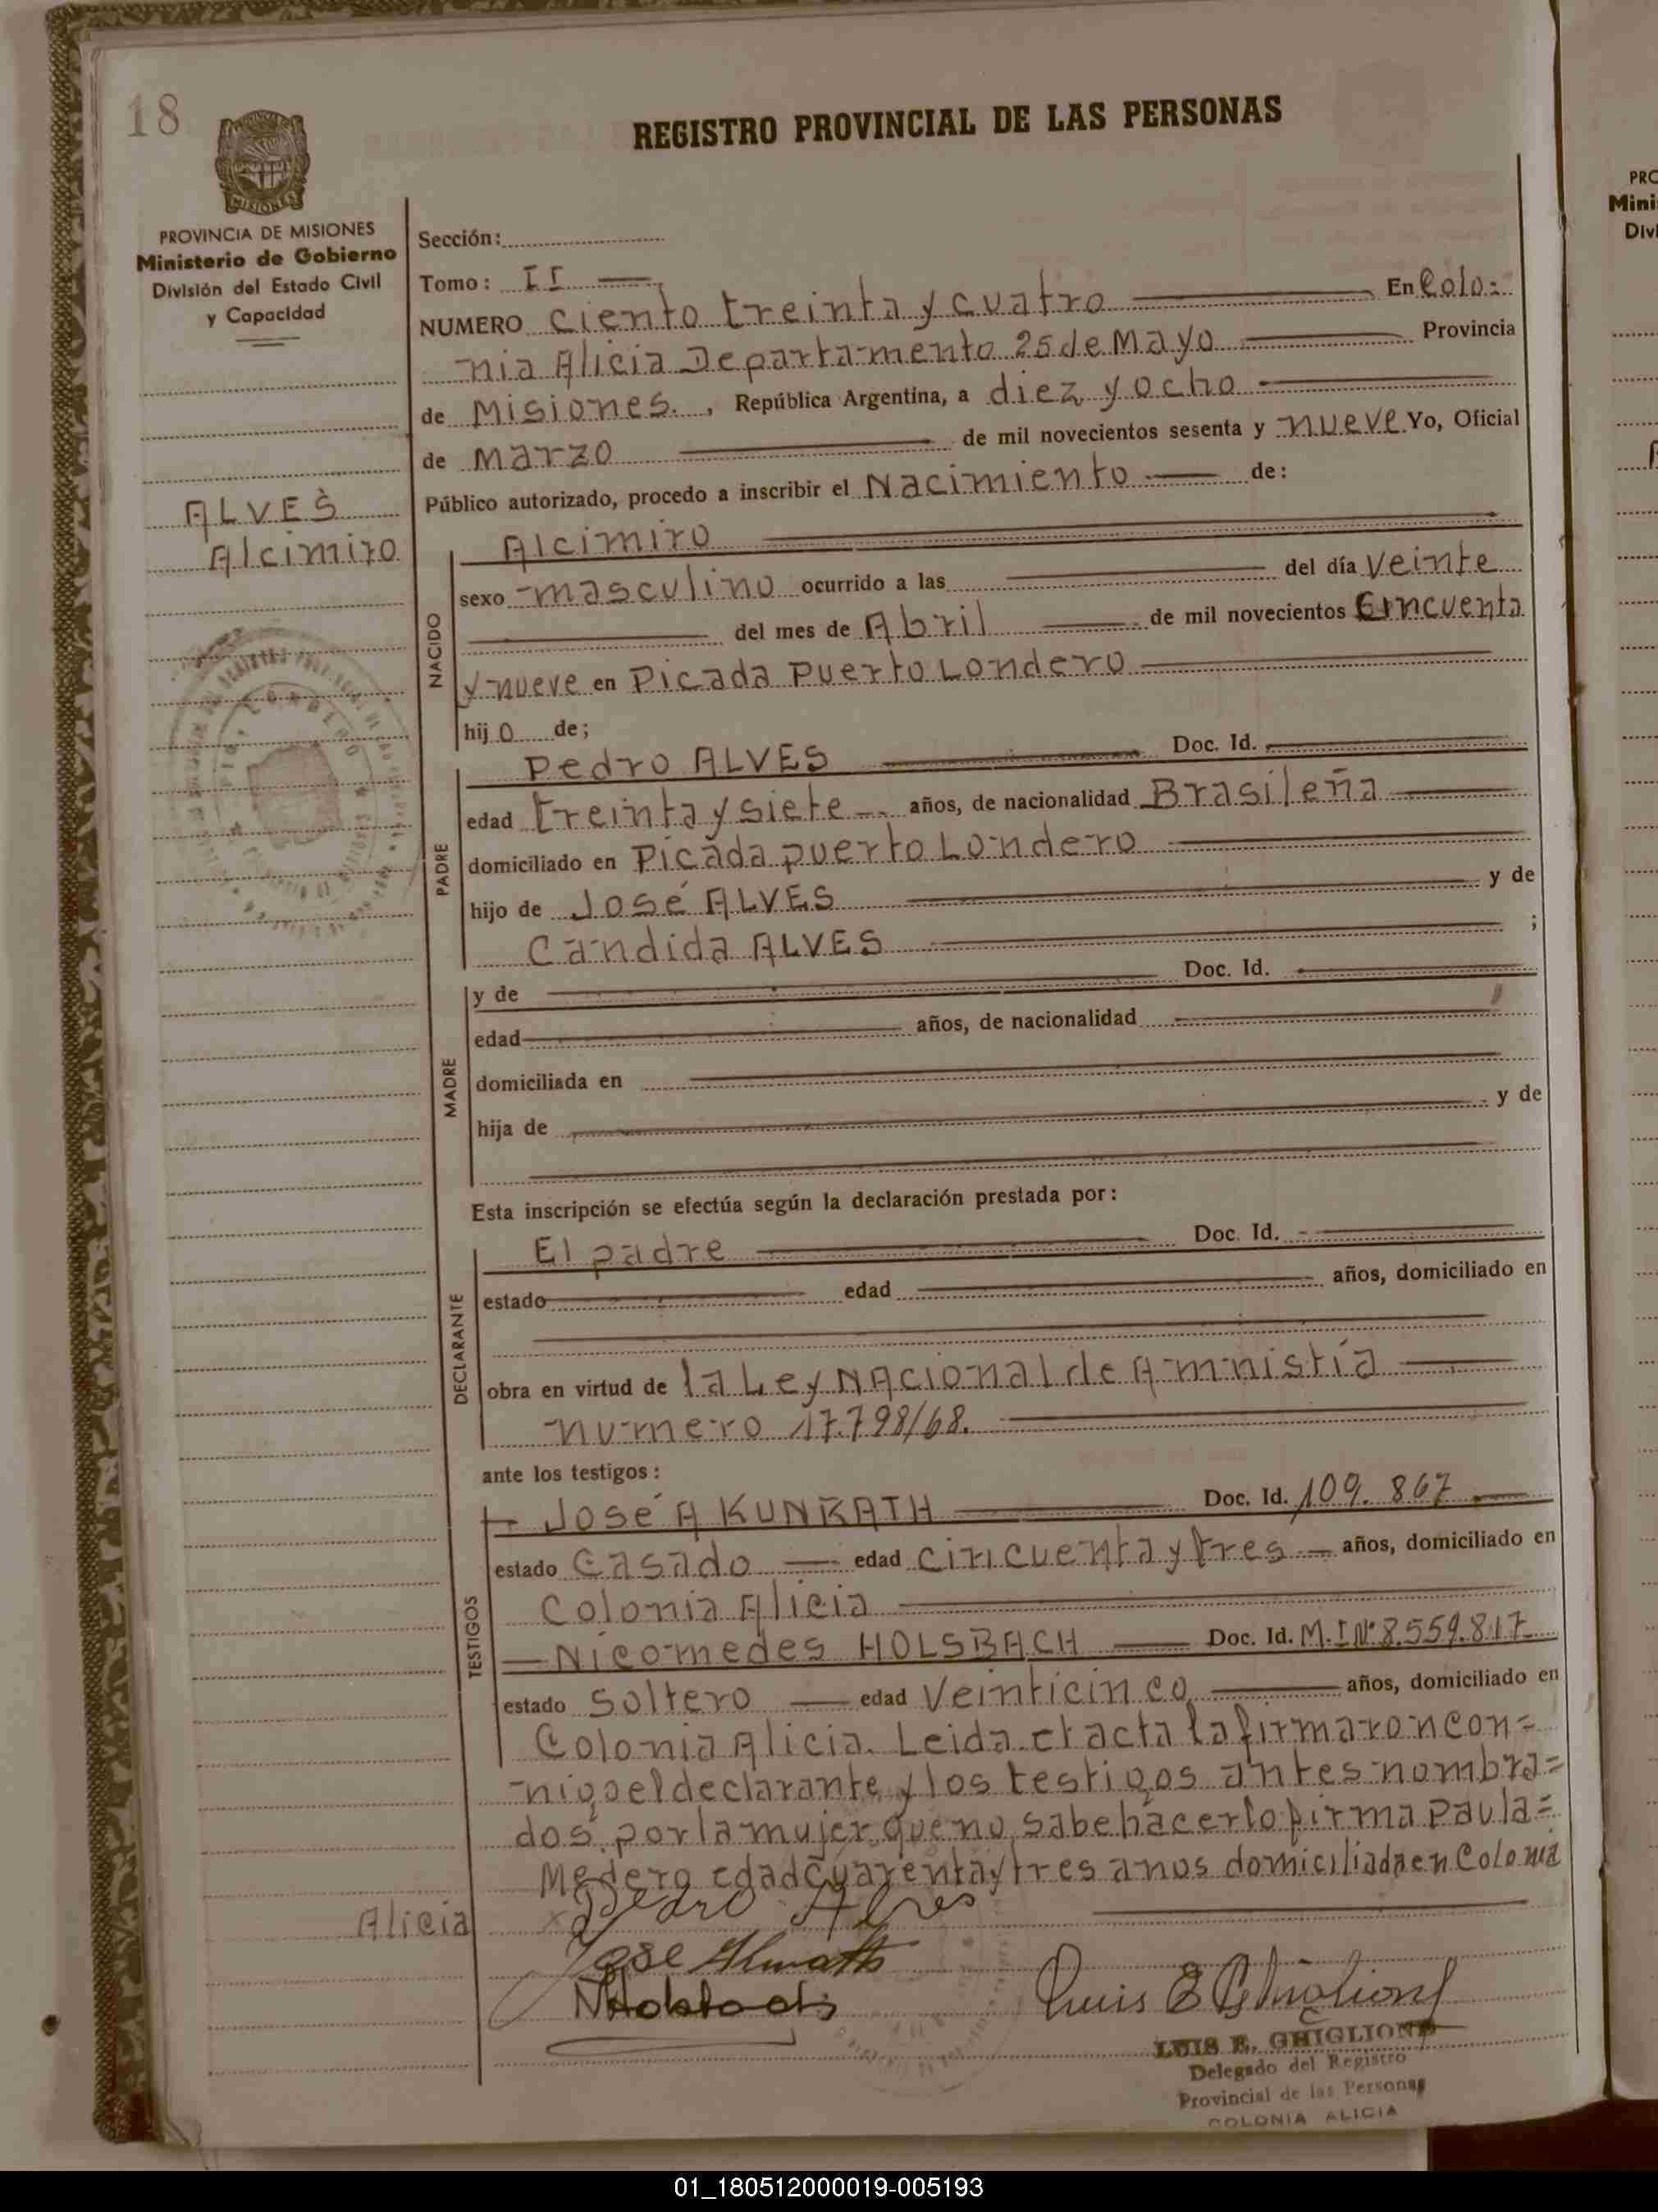 18
REGISTRO PROVINCIAL DE LAS PERSONAS
MISIONES
PROVINCIA DE MISIONES
Ministerio de Gobierno
División del Estado Civil
y Capacidad
ALVES
Alcimiro
Sección:
Tomo: II
NUMERO ciento treinta y cuatro En Colo=
nia Alicia Departamento 25 de Mayo Provincia
de Misiones. , República Argentina, a diez y ocho
de Marzo de mil novecientos sesenta y nueve Yo, Oficial
Público autorizado, procedo a inscribir el Nacimiento de:
NACIDO
Alcimiro
sexo masculino ocurrido a las del día veinte
del mes de Abril de mil novecientos Cincuenta
y nueve en Picada Puerto Londero
hijo de;
PADRE
Pedro ALVES Doc. Id.
edad treinta y siete años, de nacionalidad Brasileña
domiciliado en Picada puerto Londero
hijo de José ALVES y de
Candida ALVES ;
MADRE
y de Doc. Id.
edad años, de nacionalidad
domiciliada en
hija de y de
Esta inscripción se efectúa según la declaración prestada por:
DECLARANTE
El padre Doc. Id.
estado edad años, domiciliado en
obra en virtud de la Ley Nacional de Amnistía
numero 17.798/68.
ante los testigos:
TESTIGOS
José A KUNRATH Doc. Id. 109.867
estado Casado edad cincuenta y tres años, domiciliado en
Colonia Alicia
Nicomedes HOLSBACH Doc. Id. M.I Nº 8.559.817
estado Soltero edad Veinticinco años, domiciliado en
Colonia Alicia. Leida el acta la firmaron con=
migo el declarante y los testigos antes nombra=
dos, por la mujer que no sabe hacerlo firma Paula=
Medero edad cuarenta y tres anos domiciliada en Colonia
Alicia
Pedro Alves
LUIS E. GHIGLIONE
Delegado del Registro
Provincial de las Personas
COLONIA ALICIA
PRO
Mini
Divi
01_180512000019-005193